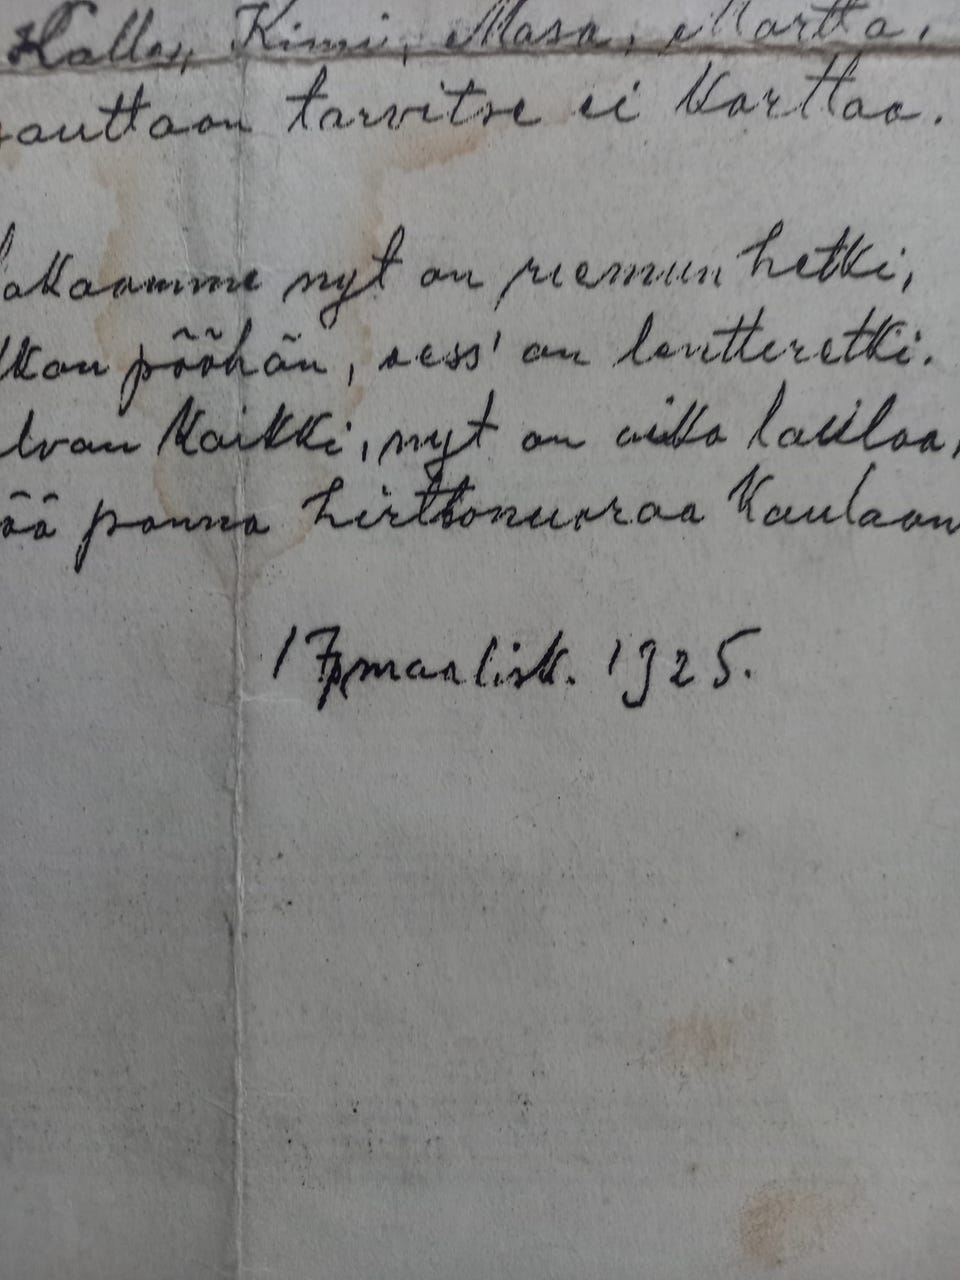 Kalle, Kimi, Masa, Martta,
auttaan tarvitse ei Karttaa.
akaamme nyt on riemun hetki,
kan pööhän, sess' on lentteretki.
lvan Kaikki, nyt on aika laulaa,
ää panna hirttonuoraa Kaulaan
17 p. maalisk. 1925.